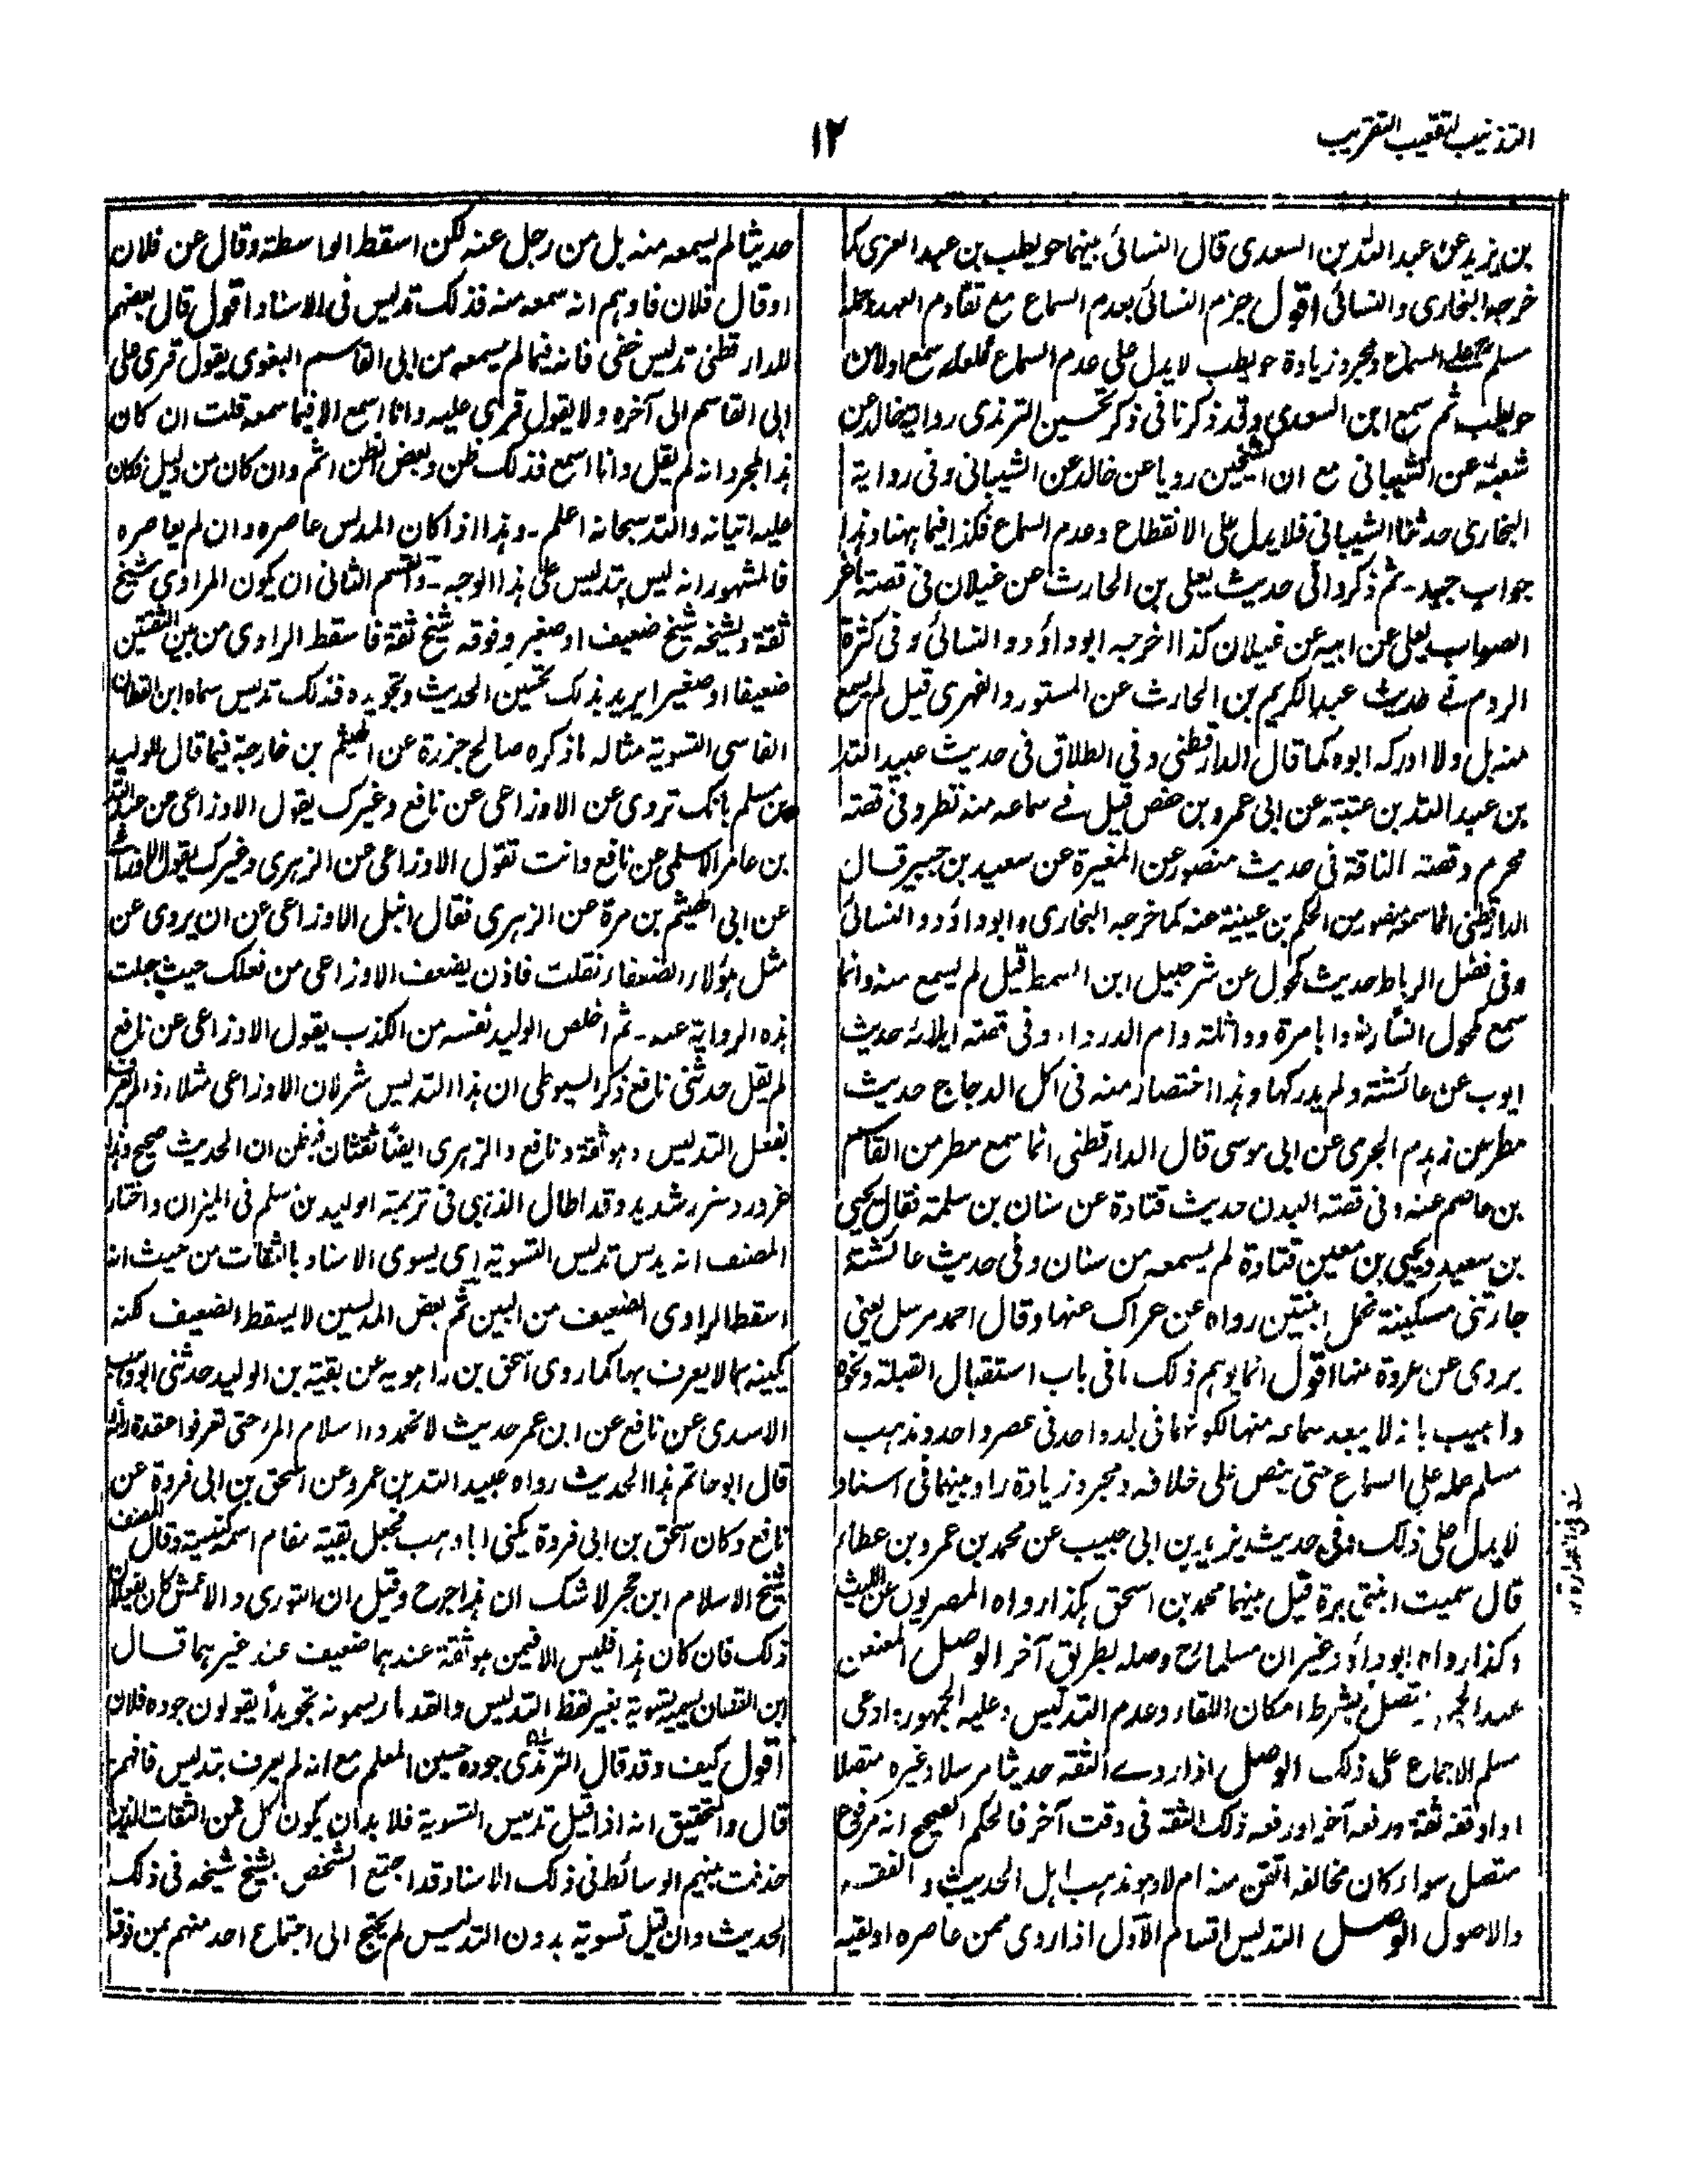 التذنيب لتعقيب التقريب
١٢
بن يزيد عن عبد الله بن السعدي قال النسائى بينهما حويطب بن عبد العزى كما
خرجه البخارى والنسائى اقول جزم النسائى بعدم السماع مع تقادم العهد وحمله
مسلم على السماع ومجرد زيادة حويطب لا يدل على عدم السماع فلعله سمع اولا من
حويطب ثم سمع ابن السعدي وقد ذكرنا فى ذكر تحسين الترمذى رواية خالد عن
شعبة عن الشيبانى مع ان الشيخين رويا عن خالد عن الشيبانى وفى رواية
البخارى حدثنا الشيبانى فلا يدل على الانقطاع وعدم السماع فكذا فيما ههنا وهذا
جواب جيد ـ ثم ذكروا فى حديث يعلى بن الحارث عن غيلان فى قصة ماعز
الصواب يعلى عن ابيه عن غيلان كذا اخرجه ابو داؤد والنسائى وفى كثرة
الروم فى حديث عبد الكريم بن الحارث عن المستورد الفهرى قيل لم يسمع
منه بل ولا ادركه ابوه كما قال الدارقطنى وفى الطلاق فى حديث عبيد الله
بن عبد الله بن عتبة عن ابى عمرو بن حفص قيل فى سماعه منه نظر وفى قصة
محرم وقصته الناقة فى حديث منصور عن المغيرة عن سعيد بن جبير قال
الدارقطنى انما سمعه منصور من الحكم بن عيينة عنه كما خرجه البخارى وابو داؤد والنسائى
وفى فضل الرباط حديث مكحول عن شرحبيل ابن السمط قيل لم يسمع منه وانما
سمع مكحول انسا وابا مرة وواثلة وام الدرداء وفى قصة ايلائه حديث
ايوب عن عائشة ولم يدركها وهذا اختصار منه فى اكل الدجاج حديث
مطر عن زهدم الجرمى عن ابى موسى قال الدارقطنى انما سمع مطر من القاسم
بن عاصم عنه وفى قصة البدن حديث قتادة عن سنان بن سلمة فقال يحيى
بن سعيد ويحيى بن معين قتادة لم يسمعه من سنان وفى حديث عائشة
جاءتنى مسكينة تحمل ابنتين رواه عن عراك عنها وقال احمد مرسل يعنى
يروى عن عروة عنها اقول انما يوهم ذلك ما فى باب استقبال القبلة ونحوه
واجيب بانه لا يبعد سماعه منها لكونهما فى بلد واحد فى عصر واحد ومذهب
مسلم حمله على السماع حتى ينص على خلافه ومجرد زيادة راو بينهما فى اسناد
لا يدل على ذلك وفى حديث يزيد بن ابى حبيب عن محمد بن عمرو بن عطاء
قال سميت ابنتى برة قيل بينهما محمد بن اسحق هكذا رواه المصريون عن الليث
وكذا رواه ابو داؤد غير ان مسلما وصله بطريق آخر الوصل المعنعن
عند الجمهور متصل بشرط امكان اللقاء وعدم التدليس وعليه الجمهور ادعى
مسلم الاجماع على ذلك الوصل اذا روى الثقة حديثا مرسلا وغيره متصلا
او اوقفه ثقة ورفعه آخر اورفعه ذلك الثقة فى وقت آخر فالحكم الصحيح انه مرفوع
متصل سواء كان مخالفه اتقن منه ام لا وهو مذهب اهل الحديث والفقه
والاصول الوصل التدليس اقسام الاول اذا روى ممن عاصره او لقيه
حديثا لم يسمعه منه بل من رجل عنه لكن اسقط الواسطة وقال عن فلان
او قال فلان فاوهم انه سمعه منه فذلك تدليس فى الاسناد اقول قال بعضهم
للدارقطنى تدليس خفى فانه فيما لم يسمعه من ابى القاسم البغوى يقول قرى على
ابى القاسم الى آخره ولا يقول قرى عليه وانا اسمع الا فيما سمعه قلت ان كان
هذا المجرد انه لم يقل وانا اسمع فذلك ظن وبعض الظن اثم وان كان من دليل فكان
عليه اتيانه والله سبحانه اعلم ـ وهذا اذا كان المدلس عاصره وان لم يعاصره
فالمشهور انه ليس بتدليس على هذا الوجه ـ والقسم الثانى ان يكون المراوى شيخ
ثقة ولشيخه شيخ ضعيف او صغير وفوقه شيخ ثقة فاسقط الراوى من بين الثقتين
ضعيفا او صغيرا يريد بذلك تحسين الحديث وتجويده فذلك تدليس سماه ابن القطان
الفاسى التسوية مثاله ما ذكره صالح جزرة عن الهيثم بن خارجة فيما قال للوليد
بن مسلم بانك تروى عن الاوزاعى عن نافع وغيرك يقول الاوزاعى عن عبد الله
بن عامر الاسلمى عن نافع وانت تقول الاوزاعى عن الزهرى وغيرك يقول الاوزاعى
عن ابى الهيثم بن مرة عن الزهرى فقال انبل الاوزاعى عن ان يروى عن
مثل هؤلاء الضعفاء فقلت فاذن يضعف الاوزاعى من فعلك حيث جلت
هذه الرواية عنه ـ ثم اخلص الوليد نفسه من الكذب يقول الاوزاعى عن نافع
لم يقل حدثنى نافع ذكر السيوطى ان هذا التدليس شر لان الاوزاعى مثلا اذا لم يعرف
بفعل التدليس وهو ثقة ونافع والزهرى ايضا ثقتان فيظن ان الحديث صحيح وهذا
غرور وضرر شديد وقد اطال الذهبى فى ترجمة الوليد بن مسلم فى الميزان واختار
المصنف انه يدلس تدليس التسوية اى يسوى الاسناد بالثقات من حيث انه
اسقط الراوى الضعيف من البين ثم بعض المدلسين لا يسقط الضعيف لكنه
يكنيه بما لا يعرف بها كما روى اسحق بن راهويه عن بقية بن الوليد حدثنى ابو وهب
الاسدى عن نافع عن ابن عمر حديث لا تحمدوا اسلام المرء حتى تعرفوا عقدة رأيه
قال ابو حاتم هذا الحديث رواه عبيد الله بن عمرو عن اسحق بن ابى فروة عن
نافع وكان اسحق بن ابى فروة يكنى ابا وهب فجعل بقية مقام اسمه كنيته وقال المصنف
شيخ الاسلام ابن حجر لا شك ان هذا جرح وقيل ان الثورى والاعمش كان يفعلان
ذلك فان كان هذا فليس الا فيمن هو ثقة عندهما ضعيف عند غيرهما قال
ابن القطان يسميه تسوية بغير لفظ التدليس والقدماء يسمونه تجويدا يقولون جوده فلان
اقول كيف وقد قال الترمذى جوده حسين المعلم مع انه لم يعرف بتدليس فافهم
قال والتحقيق انه اذا قيل تدليس التسوية فلا بد ان يكون كل من الثقات الذين
حذفت بينهم الوسائط فى ذلك الاسناد قد اجتمع الشخص بشيخ شيخه فى ذلك
الحديث وان قيل تسوية بدون التدليس لم يحتج الى اجتماع احد منهم بمن فوقه